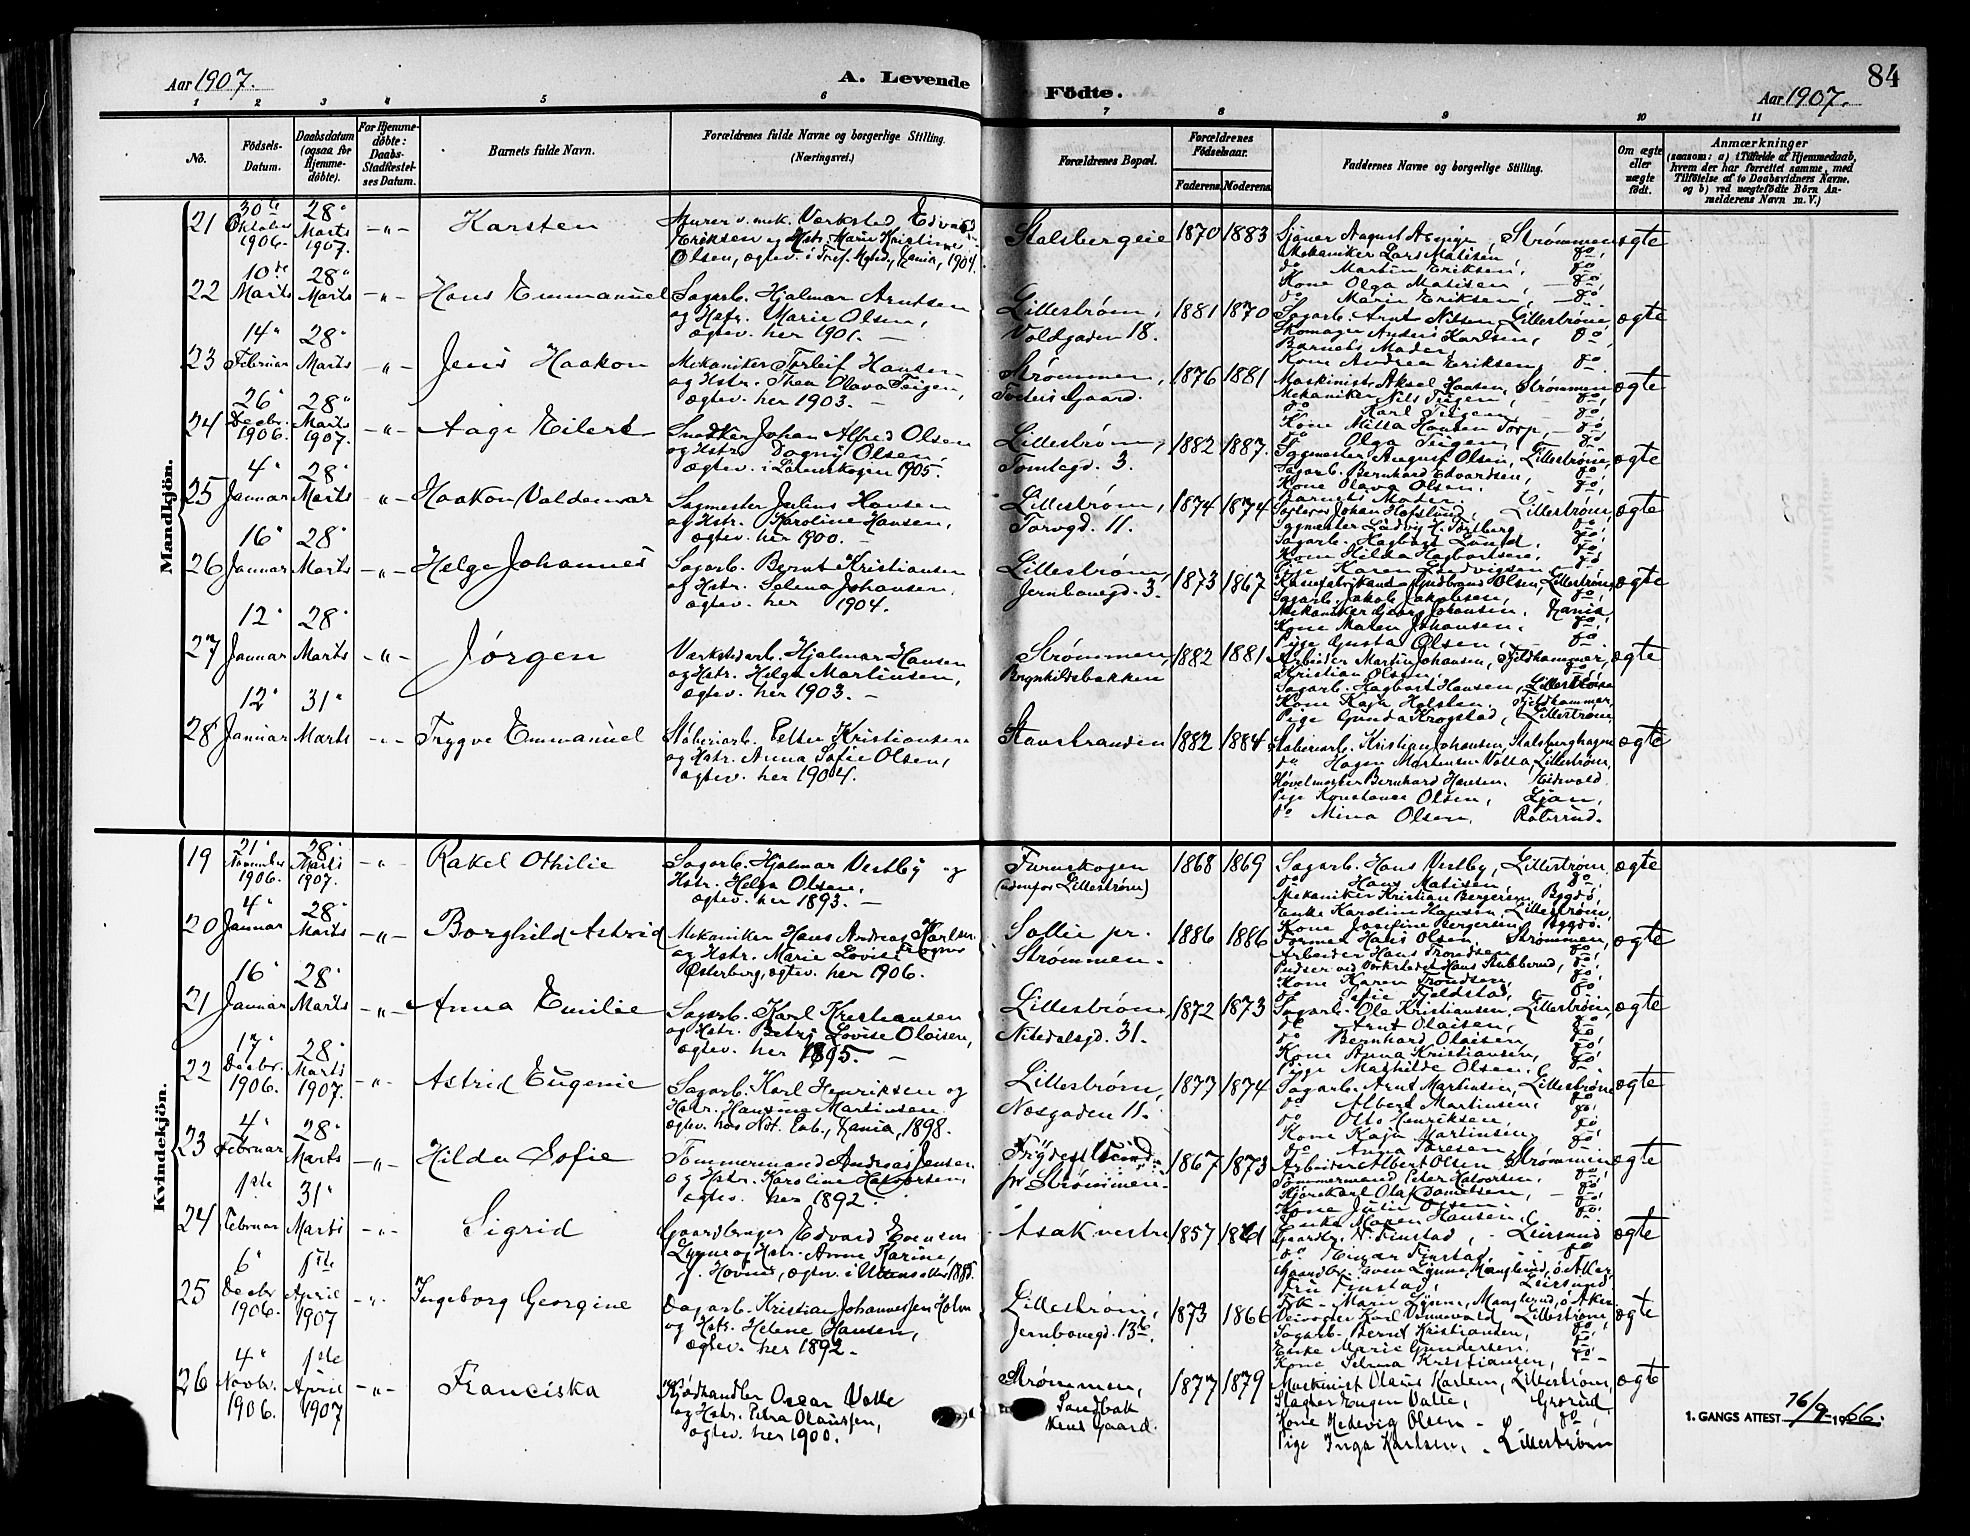 84
Aar 1907.
A. Levende
Födte.
Aar 1907.
1 2 3 4 5 6 7 8 9 10 11
No.
Födsels-Datum.
Daabsdatum (ogsaa for Hjemme-døbte).
For Hjemme-døbte: Daabs-Stadfæstel-ses Datum.
Barnets fulde Navn.
Forældrenes fulde Navne og borgerlige Stilling.
(Næringsvei.)
Forældrenes Bopæl.
Forældrenes Födselsaar.
Faderens. Moderens.
Faddernes Navne og borgerlige Stilling.
Om ægte eller uægte födt.
Anmærkninger
(saasom: a) i Tilfælde af Hjemmedaab, hvem der har forrettet samme, med Tilföielse af to Daabsvidners Navne, og b) ved uægtefödte Börn An-melderens Navn m. V.)
Mandkjön.
21 30te Oktober 1906. 28" Marts 1907. -"- Karsten
v. mek. Værksted Edvard
Eriksen og Hstr. Marie Kristine
Olsen, ægtev. i 1904.
Stalsbergeie 1870 1883
August Strømmen
Mekaniker Lars Matisen, do
do Martin Eriksen, do
Kone Olga Matisen, do
do Marie Eriksen, do
ægte
22 10de Marts 28" Marts -"- Hans Emmanuel
Sagarb. Hjalmar Arntsen
og Hstr. Marie Olsen,
ægtev. her 1901. —
Lillestrøm, Voldgaden 18. 1881 1870
Sagarb. Arnt Nilsen, Lillestrøm,
Skomager Anders Karlsen, do
Barnets Moder,
Kone Andrea Eriksen, do
ægte
23 14" Februar 28" Marts -"- Jens Haakon
Mekaniker Torleif Hansen
og Hstr. Thea Olava Teigen,
ægtev. her 1903. —
Strømmen, Gaard. 1876 1881
Maskinist Aksel Hansen, Strømmen
Mekaniker Nils Teigen, do
do Karl Teigen, do
Kone Milla Hansen Torp, do
do Olga Teigen, do
ægte
24 26" Decbr. 1906. 28" Marts 1907. -"- Aage Eilert
Snedker Johan Alfred Olsen
og Hstr. Dagny Olsen,
ægtev. i 1905.
Lillestrøm, Tomtegd. 3. 1882 1887.
August Olsen, Lillestrøm,
Sagarb. Bernhard Edvardsen, do
Kone Olava Olsen, do
Barnets Moder.
ægte
25 4" Januar 28" Marts -"- Haakon Valdemar
Sagmester Julius Hansen
og Hstr. Karoline Hansen,
ægtev. her 1900. —
Lillestrøm, Torvgd. 11. 1874 1874
Johan Lillestrøm,
Sagmester Ludvig H. do
Sagarb. Hagbart Lund, do
Kone Hilda Hagbartsen, do
Pige Karen Ludvigsen do
ægte
26 16" Januar 28" Marts -"- Helge Johannes
Sagarb. Bernt Kristiansen
og Hstr. Selma Johansen,
ægtev. her 1904.
Lillestrøm, Jernbanegd. 3. 1873 1867
Gudbrand Olsen, Lillestrøm
Sagarb. Jakob Jakobsen, do
Mekaniker Georg Johansen,
Kone Maren Johansen, do
Pige Gusta Olsen, do
ægte
27 12" Januar 28" Marts -"- Jørgen
Værkstedarb. Hjalmar Hansen
og Hstr. Helga Martinsen,
ægtev. her 1903. —
Strømmen, Ragnhildsbakken 1882 1881
Arbeider Martin Johansen, Fjeldhammer,
Kristian Olsen, do
Sagarb. Hagbart Hansen, Lillestrøm
Kone Kaja Holsten, Fjeldhammer,
Pige Gunda Krogstad, Lillestrøm
ægte
28 12" Januar 31" Marts -"- Trygve Emmanuel
Støberiarb. Petter Kristiansen
og Hstr. Anna Sofie Olsen,
ægtev. her 1904.
Stavsbranden 1882 1884
Støberiarb. Kristian Johansen, Stalsberghagen
do Hagen Martinsen Volla, Lillestrøm,
Høvelmester Bernhard Hansen, Eidsvold.
Pige Konstance Olsen, Ljan,
do Mina Olsen,
ægte
Kvindekjön.
19 21" November 1906. 28" Marts 1907. -"- Rakel Othilie
Sagarb. Hjalmar Vestby og
Hstr. Helga Olsen,
ægtev. her 1893. —
Furuskogen (udenfor Lillestrøm) 1868 1869
Sagarb. Hans Vestby, Lillestrøm,
do Hans Matisen, do
Mekaniker Kristian Bergersen, Bygdø,
Enke Karoline Hansen, Lillestrøm,
Kone Josefine Bergersen, Bygdø.
ægte
20 4" Januar 28" Marts -"- Borghild Astrid
Mekaniker Hans Andreas Karlsen
og Hstr. Marie Lovise Ragna
Østerberg, ægtev. her 1906.
Sollie pr. Strømmen. 1886 1886
Former Hans Olsen, Strømmen,
Arbeider Hans Trondsen, do
Pudser ved Værkstedet Hans Stubberud, do
Kone Karen Trondsen, do
do Sofie Fjeldstad, do
ægte
21 16" Januar 28" Marts -"- Anna Emilie
Sagarb. Karl Kristiansen
og Hstr. Petra Lovise Olaisen,
ægtev. her 1895. —
Lillestrøm, Nitedalsgd. 31. 1872 1873
Sagarb. Ole Kristiansen, Lillestrøm,
do Arnt Olaisen, do
do Bernhard Olaisen, do
Kone Anna Kristiansen, do
Pige Mathilde Olsen. do
ægte
22 17" Decbr. 1906. 28" Marts 1907. -"- Astrid Eugenie
Sagarb. Karl Henriksen og
Hstr. Hansine Martinsen
ægtev. hos Not. Pub., 1898.
Lillestrøm, Næsgaden 11. 1877 1874
Sagarb. Arnt Martinsen, Lillestrøm
do Albert Martinsen, do
do Otto Henriksen, do
Kone Kaja Martinsen, do
do Anna Toresen, do
ægte
23 4" Februar 28" Marts -"- Hilda Sofie
Tømmermand Andreas Jensen
og Hstr. Karoline Halvorsen,
ægtev. her 1892.
pr Strømmen. 1867 1873
Arbeider Albert Olsen Strømmen
Tømmermand Peter Halvorsen, do
Kjørekarl Olaf Danielsen, do
Kone Julie Olsen. do
Enke Maren Hansen, do
ægte
24 1ste Februar 31" Marts -"- Sigrid
Gaardbruger Edvard Evensen
Lynne og Hstr. Anne Karine,
f. Hovin, ægtev. i Ullensaker, 1885.
Asak vestre 1857 1861
Gaardbr. N. Finstad, Leirsund
do Einar Finstad, do
Gaardbr. Even Lynne, Manglerud, ø Aker,
Fru Finstad, Leirsund
Frk. Maren Lynne, Manglerud, ø Aker
ægte
25 6" Decbr 1906. 1ste April 1907 -"- Ingeborg Georgine
Dagarb. Kristian Johannessen Holm
og Hstr. Helene Hansen,
ægtev. her 1892.
Lillestrøm, Jernbanegd. 13b. 1873 1866
Veivogter Karl Lillestrøm
Sagarb. Bernt Kristiansen, do
Enke Marie Gundersen, do
Kone Selma Kristiansen, do
ægte
26 4" Novbr. 1906. 1ste April 1907 -"- Franciska
Kjødhandler Oscar Valle
og Hstr. Petra Olaussen,
ægtev. her 1900.
Strømmen, Sandbæk Gaard. 1877 1879
Maskinist Olaus Karlsen, Lillestrøm,
Slagter Eugen Valle, Grorud,
Kone Hedevig Olsen - do
Pige Inga Karlsen, - Lillestrøm
ægte
1. GANGS ATTEST 16/9 1966.